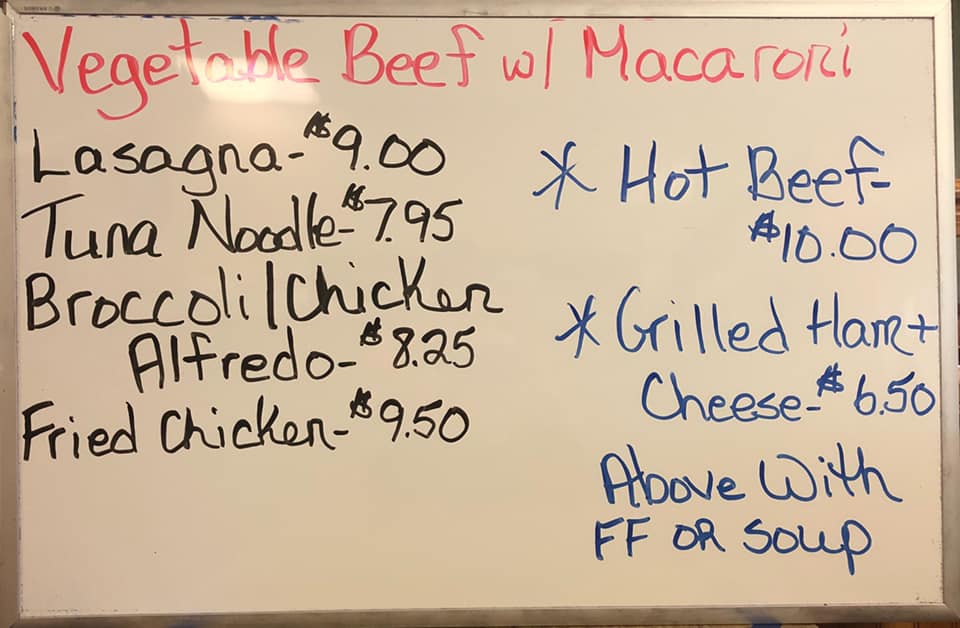 Vegetable Beef w/ Macaroni
Lasagna-$9.00
Tuna Noodle-$7.95
Broccoli/Chicken
Alfredo-$8.25
Fried Chicken-$9.50
* Hot Beef-
$10.00
* Grilled Ham+
Cheese-$6.50
Above With
FF OR Soup